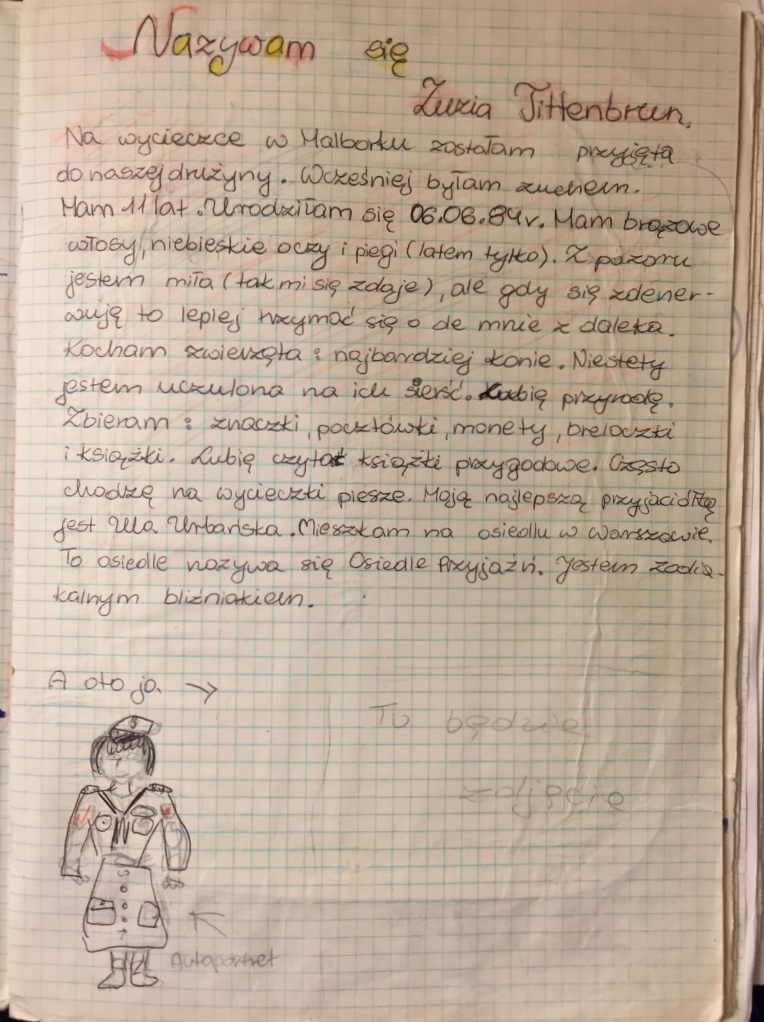 Nazywam się
Zuzia Tittenbrun.
Na wycieczce w Malborku zostałam przyjęta
do naszej drużyny. Wcześniej byłam zuchem.
Mam 11 lat. Urodziłam się 06.06.84r. Mam brązowe
włosy, niebieskie oczy i piegi (latem tylko). Z pozoru
jestem miła (tak mi się zdaje), ale gdy się zdener-
wuję to lepiej trzymać się o de mnie z daleka.
Kocham zwierzęta : najbardziej konie. Niestety
jestem uczulona na ich sierść. Lubię przyrodę.
Zbieram : znaczki, pocztówki, monety, breloczki
i książki. Lubię czytać książki przygodowe. Często
chodzę na wycieczki piesze. Moją najlepszą przyjaciółką
jest Ula Urbańska. Mieszkam na osiedlu w Warszawie.
To osiedle nazywa się Osiedle Przyjaźń. Jestem zodia-
kalnym bliźniakiem.
A oto ja. →
Tu będzie
zdjęcie
Autoportret